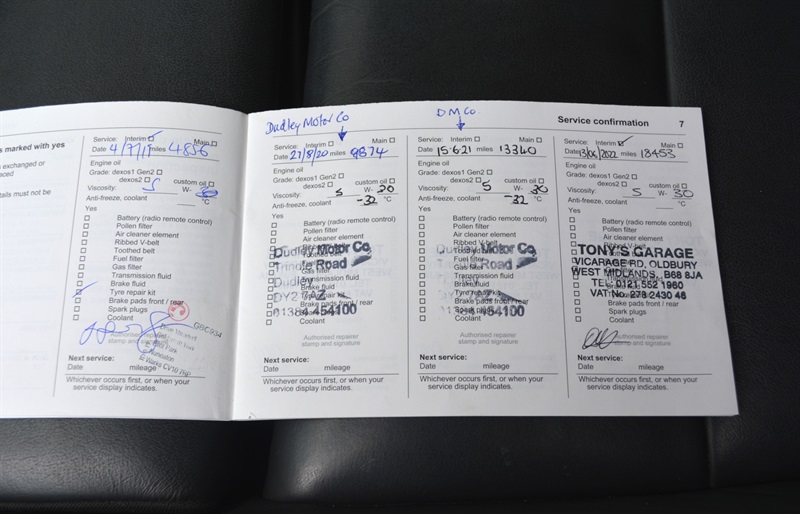 s marked with yes
exchanged or
aced
tails must not be
Service: Interim Main
Date 4/7/1 miles 4856
Engine oil
Grade: dexos1 Gen2
dexos2 custom oil
Viscosity: 5 W-
Anti-freeze, coolant °C
Yes
Battery (radio remote control)
Pollen filter
Air cleaner element
Ribbed V-belt
Toothed belt
Fuel filter
Gas filter
Transmission fluid
Brake fluid
Tyre repair kit
Brake pads front / rear
Spark plugs
Coolant
Next service:
Date mileage
Whichever occurs first, or when your
service display indicates.
Service confirmation 7
Dudley Motor Co
Service: Interim Main
Date 21/8/20 miles 9874
Engine oil
Grade: dexos1 Gen2
dexos2 custom oil
Viscosity: 5 W- 20
Anti-freeze, coolant -32 °C
Yes
Battery (radio remote control)
Pollen filter
Air cleaner element
Ribbed V-belt
Dudley Motor Co
Trindle Road
Dudley
DY2 7AZ
01384 454100
Transmission fluid
Brake pads front / rear
Spark plugs
Coolant
Authorised repairer
stamp and signature
Next service:
Date mileage
Whichever occurs first, or when your
service display indicates.
DM Co
Service: Interim Main
Date 15.6.21 miles 13340
Engine oil
Grade: dexos1 Gen2
dexos2 custom oil
Viscosity: 5 W- 30
Anti-freeze, coolant -32 °C
Yes
Battery (radio remote control)
Pollen filter
Air cleaner element
Ribbed V-belt
Dudley Motor Co
Road
Transmission fluid
Brake fluid
Tyre repair kit
454100
Spark plugs
Coolant
Authorised repairer
stamp and signature
Next service:
Date mileage
Whichever occurs first, or when your
service display indicates.
Service: Interim Main
Date 13/06/2022 miles 18453
Engine oil
Grade: dexos1 Gen2
dexos2 custom oil
Viscosity: 5 W- 30
Anti-freeze, coolant °C
Yes
Battery (radio remote control)
Pollen filter
Air cleaner element
TONY'S GARAGE
VICARAGE RD, OLDBURY
WEST MIDLANDS, B68 8JA
TEL: 0121 552 1960
VAT No 278 2430 46
Brake pads front / rear
Spark plugs
Coolant
Authorised repairer
stamp and signature
Next service:
Date mileage
Whichever occurs first, or when your
service display indicates.